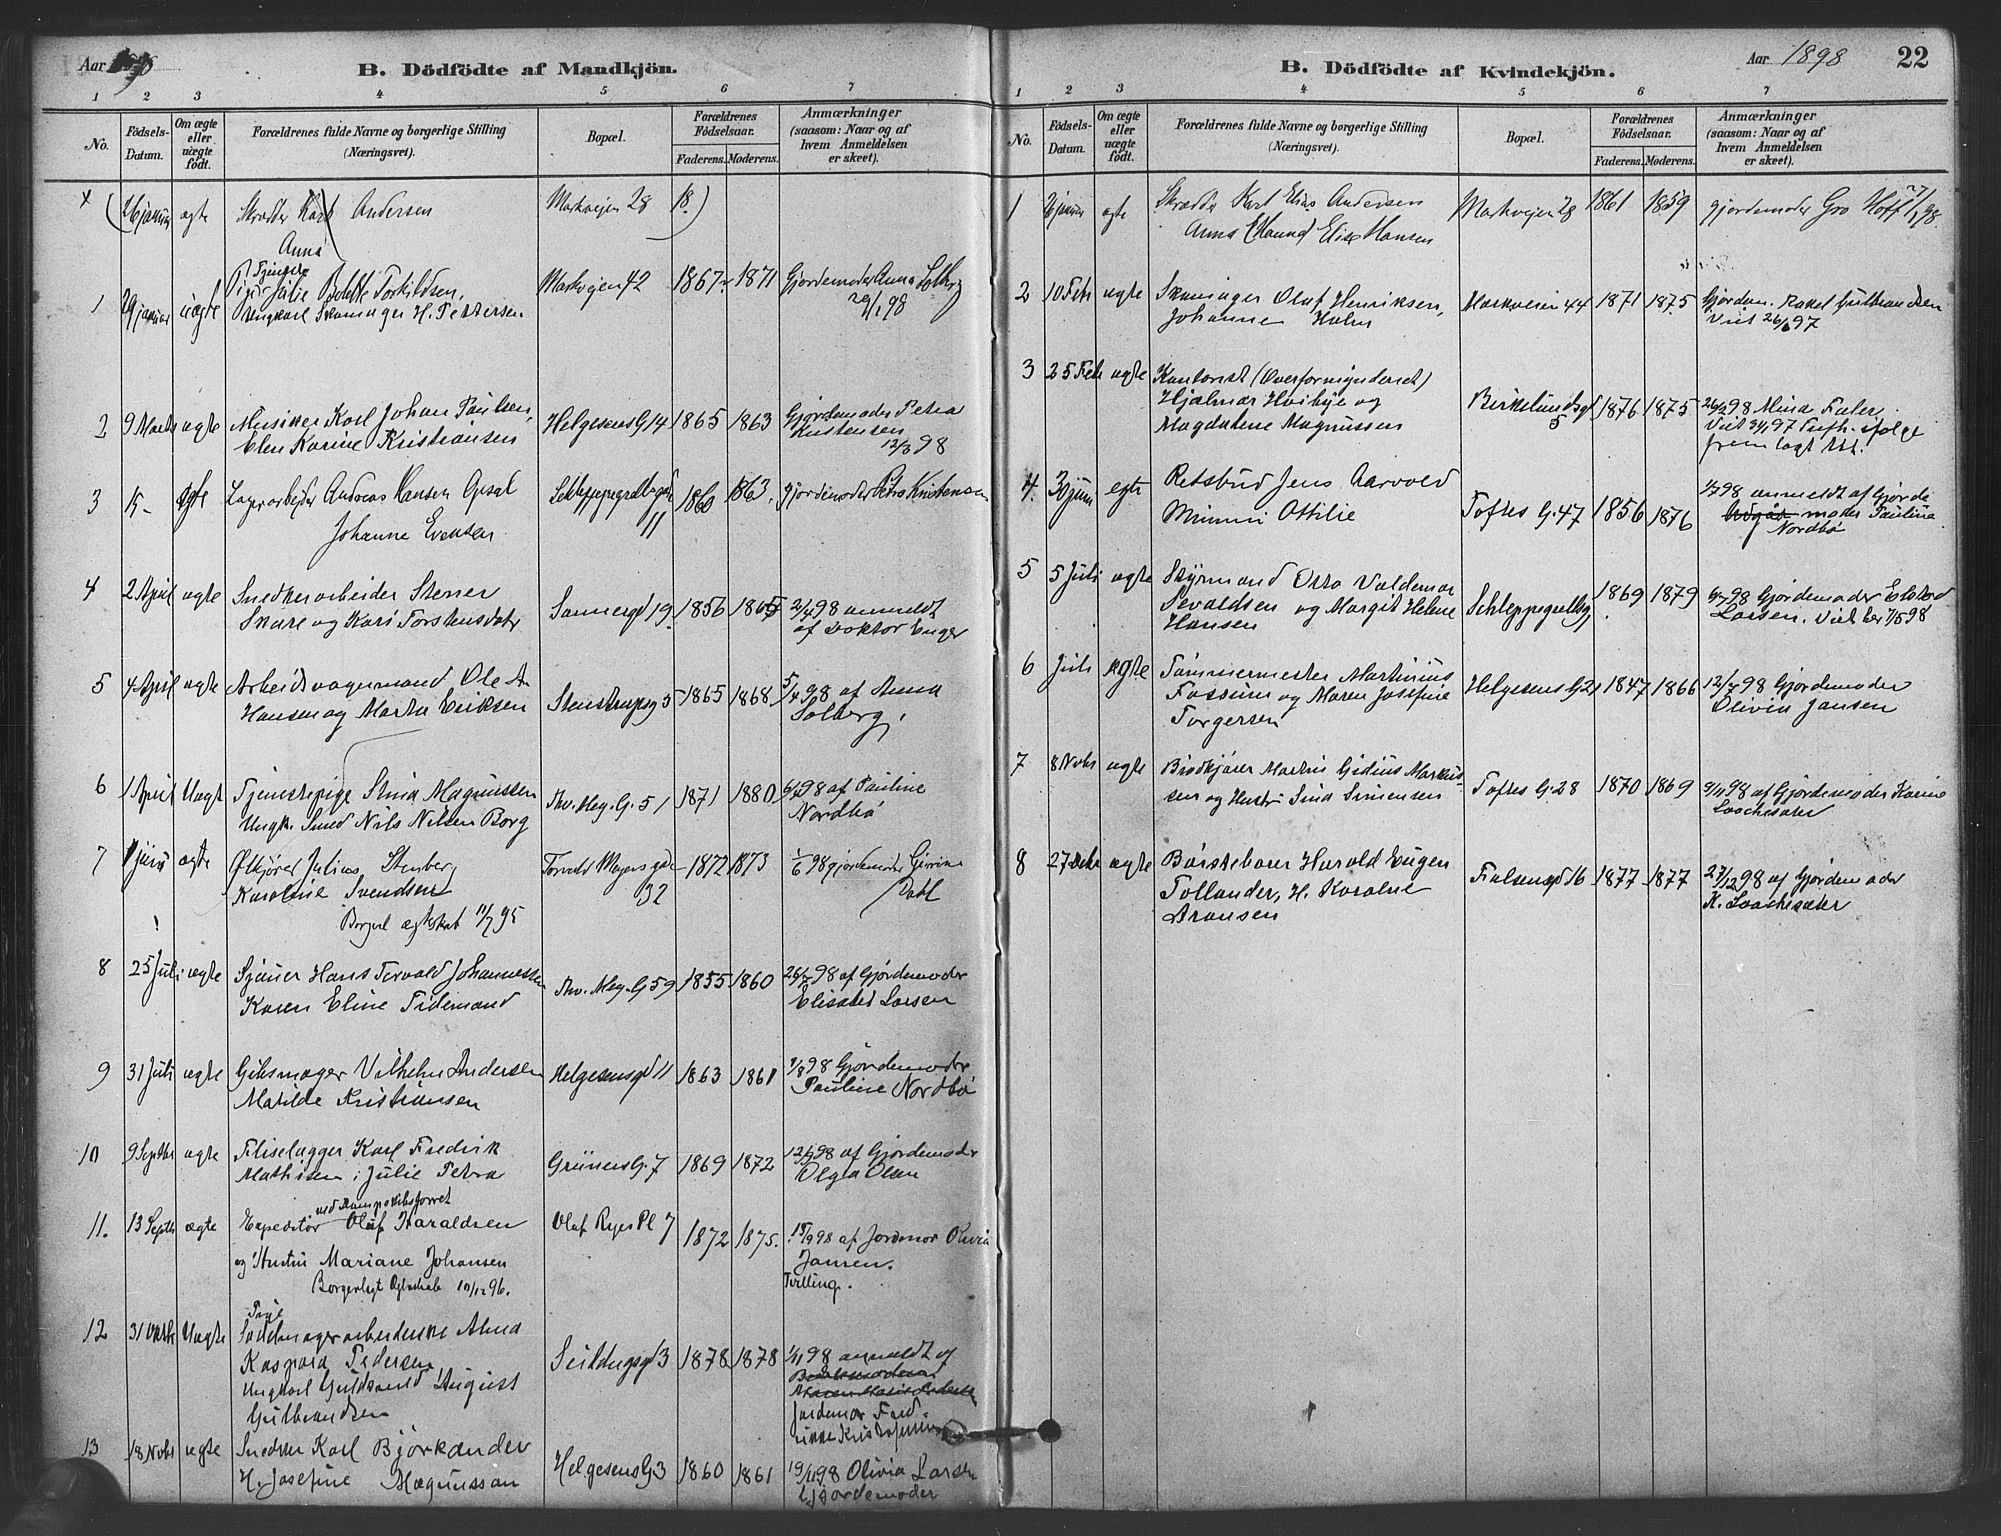 B. Dödfödte af Mandkjön.
1 2 3 4 5 6 7
No. Födsels-Datum. Om ægte eller uægte födt. Forældrenes fulde Navne og borgerlige Stilling (Næringsvei). Bopæl. Forældrenes Födselsaar. Faderens. Moderens. Anmærkninger (saasom: Naar og af hvem Anmeldelsen er skeet).
ægte Skrædder Karl Andersen Markveien 28 18
Anna
1 29 januar uægte Pige Julie Bolette Torkildsen, Markveien 42 1867 1871 Gjordemoder Anna Solberg
Ungkarl Skomager H. Pettersen 29/1 98
2 9 Marts ægte Musiker Karl Johan Paulsen, Helgesens G 14 1865 1863 Gjordemoder Petra
Elen Karine Kristiansen Kristensen
12/3 98
3 15 - ægte Lagerarbejder Andreas Hansen Opsal 11 1860 1863. gjordemoder Petra Kristensen
Johanne Evensen
4 2 April ægte Snedkerarbeider Stener Sannergd 19. 1856 2/4 98 anmeldt
Skare og Kari Torstensdatr af Doktor Enger
5 4 April ægte Arbeidsvognmand Ole A Stenstrupsg 5 1865 1868 5/4 98 af Anna
Hansen og Marte Eriksen Solberg.
6 1 April Uægt Tjenestepige Stina Magnussen Thv. Mey. G. 51 1871 1880 6/4 98 af Pauline
Ungk. Smed Nils Nilsen Borg Nordbø
7 juni ægte Ølkjører Julius Stenberg Torvald Meyers gade 32 1872 1873 1/6 98 gjordemoder
Karoline Svendsen Dahl
Borgerl ægteskab 11/7 95
8 25 Juli ægte Sjauer Hans Torvald Johannessen Thv. Mey. G 59 1855 1860 26/7 98 af Gjordemoder
Karen Eline Tidemand Elisabeth Larsen
9 31 Juli ægte Gibsmager Vilhelm Andersen Helgesensgd 11 1863 1861 1/8 98 Gjordemoder
Matilde Kristiansen Pauline Nordbø
10 9 Septbr ægte Fliselægger Karl Fredrik Grüners G. 7 1869 1872 12/9 98 af Gjordemoder
Mathisen, Julie Petra Olga Olsen
11. 13 Septbr ægte Expeditör Olaf Haraldsen Olaf Ryes Pl 7 1872 1875. 15/9 98 af Jordmor Olivia
og Hustru Mariane Johansen Jansen.
Borgerligt Ægteskab 10/12 96. Tvilling.
12 31 Uægte Pige
Saddmagerarbeiderske Alma Seildugsgd 3 1878 1878 1/11 98 anmeldt af
Kaspara Pedersen
Ungkarl Guldsmed August Jordemor Fred-
Gulbrandsen rikke Kristofersen
13 18 Novbr ægte Snedker Karl Björkander Helgesens G. 3 1860 1861 19/11 98 Olivia Larsen
H. Josefine Magnusson Gjordemoder
B. Dödfödte af Kvindekjön. Aar 1898 22
1 2 3 4 5 6 7
No. Födsels-Datum. Om ægte eller uægte födt. Forældrenes fulde Navne og borgerlige Stilling (Næringsvei). Bopæl. Forældrenes Födselsaar. Faderens. Moderens. Anmærkninger (saasom: Naar og af hvem Anmeldelsen er skeet).
1 januar ægte Skrædder Karl Elias Andersen Markveien 28 1861 1859 gjordemoder Gro Hoff
Anna Elise Hansen
2 10 Febr ægte Skomager Olaf Henriksen, Markveien 44 1871 1875 Gjordem. Rakel Gulbrandsen
Johanne Holm Viet 26/ 97
3 25 Febr ægte Kontorist (Overformynderiet) Birkelundsgt 5 1876 1875 26/2 98 Mina
Hjalmar Hvibye og Viet 97
Magdalene Magnussen fremlagt Att.
4. 30 juni egte Retsbud Jens Aarvold Toftes G. 47 1856 1876 1/7 98 anmeldt af Gjorde
Minni Ottilie moder Pauline
Nordbø
5 5 Juli ægte Styrmand Otto Valdemar Schleppegrellsg 1869 1879 6/7 98 Gjordemoder Elisabeth
Sevaldsen og Margit Helene Larsen. Viet her 7/5 98
Hansen
6 Juli ægte Tømmermester Martinius Helgesens G 21 1847 1866 12/7 98 Gjordemoder
Fossum og Maren Josefine Olivia Jansen
Torgersen
7 8 Novbr ægte Brødkjører Martin Gidius Markus- Toftes G. 28 1870 1869 9/11 98 af Gjordemoder Karine
sen og Hustru Sina Simensen
8 27 Debr ægte Børstebinder Harald Eugen Falsensgd 16 1877 1877 27/12 98 af Gjordemoder
Tollander, H. Karoline K.
Aronsen